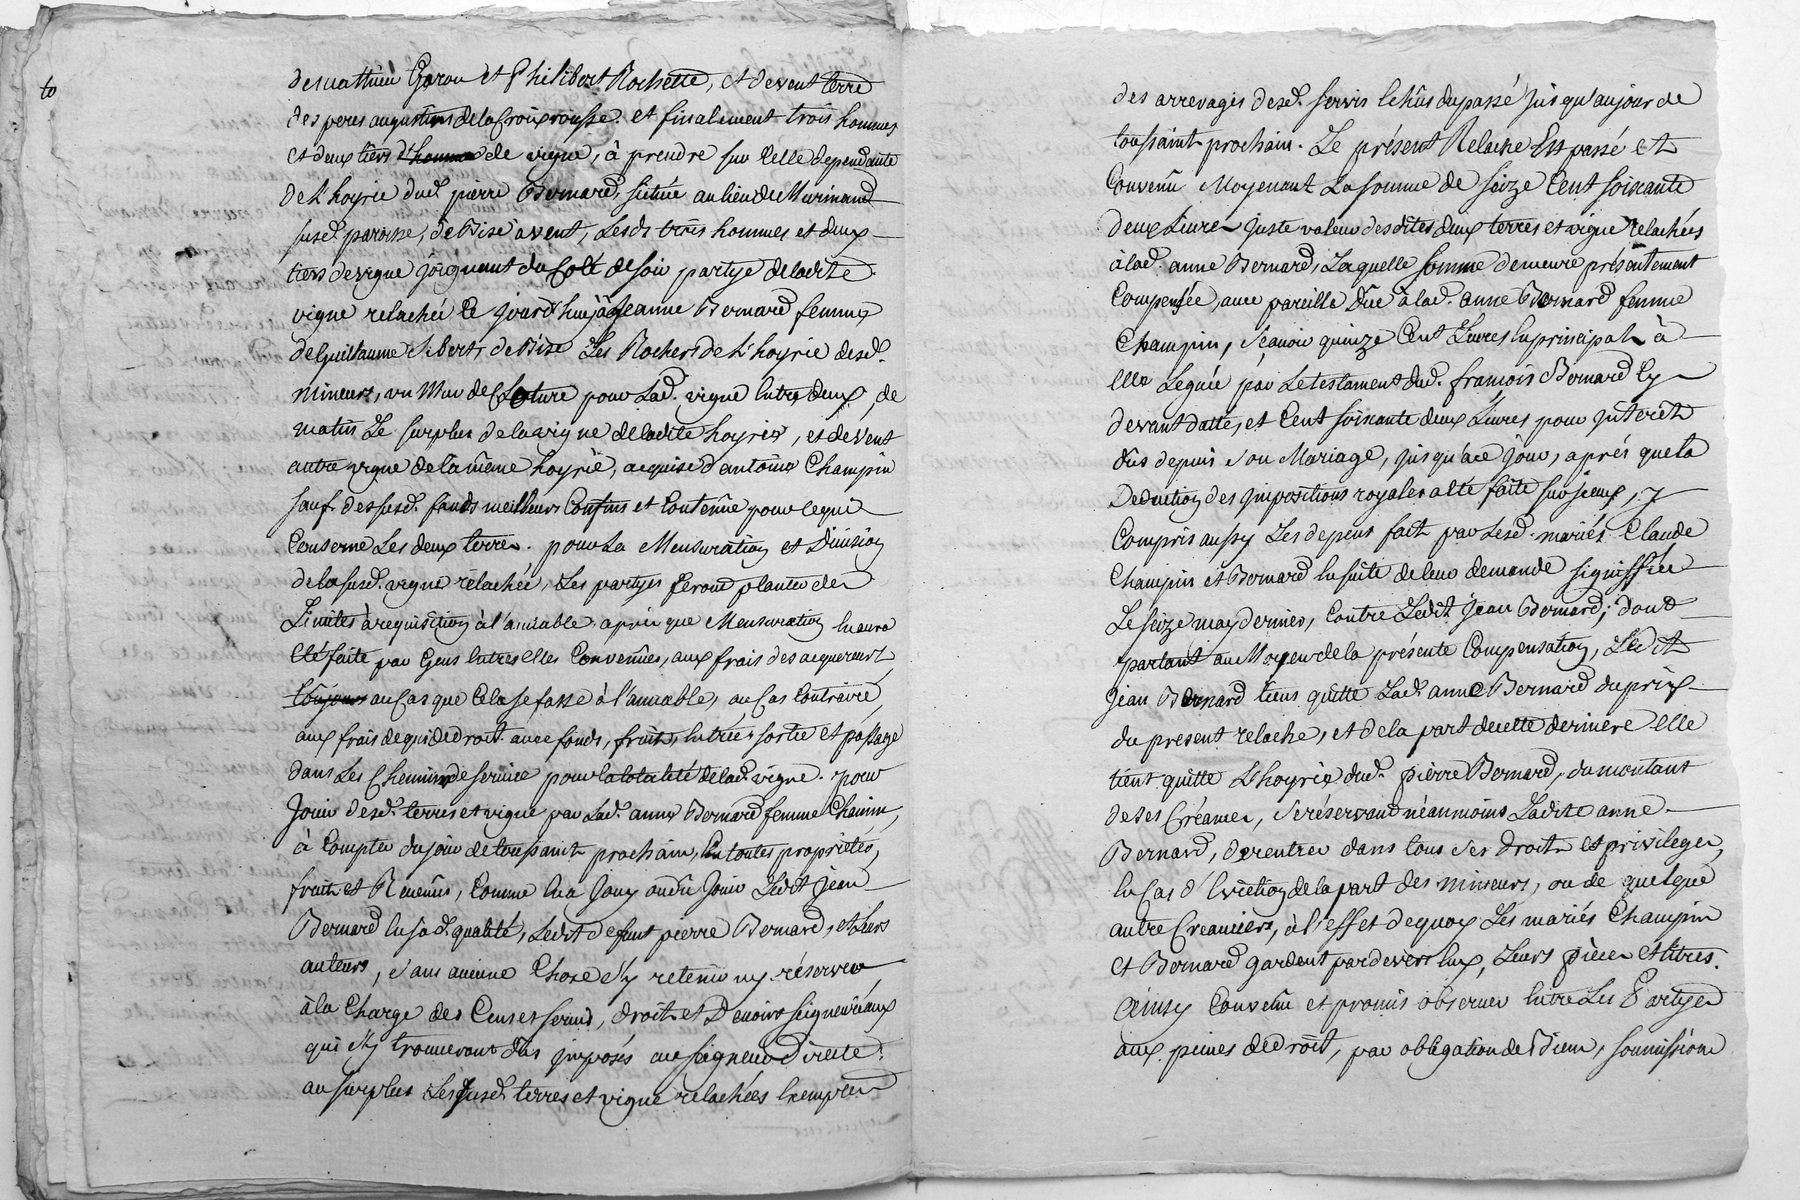 de mathieu Garon et Philibert Rochette, et de vent terre
des peres augustins de la Croix rousse. et finalement trois hommes
et deux tiers d'homme de vigne, à prendre sur Celle dependante
de l'hoyrie dud. pierre Bernard, située au lieu de Murinand
susd. paroisse, de Bise à vent, Lesds trois hommes et deux
tiers de vigne joignant du Colé de soir partye de ladite
vigne relachée Ce jourd'huy à Jeanne Bernard femme
de Guillaume Sibert, de Bise Les Rochers de l'hoyrie desd.
mineurs, un Mur de Cloture pour Lad. vigne Entre deux, de
matin Le surplus de la vigne de ladite hoyrie, et de Vent
autre vigne de la même hoyrie, acquise d'antoine Champin
sauf des susd. fonds meilleurs Confins et Contenüe pour ce qui
Conserne Les deux terres. pour La Mensuration et Division
de la susd. vigne relachée, Les partyes feront planter des
Limites à requisition à l'amiable, aprés que Mensuration En aura
Eté faite par Gens Entres elles Convenües, aux frais des acquereurs,
toujours au Cas que Cela se fasse à l'amiable, au Cas Contraire,
aux frais de qui de droit. avec fonds, fruits, Entrées sortie et passage
dans Les Chemins de service pour la totalité de lad. vigne. pour
Jouir desd. terres et vigne par Lad. anne Bernard femme Champin,
à Compter du jour de toussaint prochain, En toutes proprietés,
fruits et Revenus, Comme En a Jouy ou dû Jouir Ledit Jean
Bernard En sad. qualité, Ledit defunt pierre Bernard, et Leurs
auteurs, sans aucune Chose s'y retenir ny réserver,
à la Charge des Censes servis, droits et Devoirs seigneuriaux
qui s'y trouveront dûs imposés au seigneur Directe.
au surplus Les susd. terres et vigne relachées Exemptes
des arrerages desd. servis Echûs du passé Jusqu'au jour de
toussaint prochain. Le présent Relache Est passé et
Convenû Moyenant La somme de seize Cent soixante
deux Livres Juste valeur desdites deux terres et vigne relachées
à lad. anne Bernard, Laquelle somme demeure présentement
Compensée, avec pareille düe à lad. anne Bernard femme
Champin, sçavoir quinze Cent Livres En principal à
Elle Leguée par Le testament dud. françois Bernard Cy
devant datté, et Cent soixante deux Livres pour interêts
dûs depuis son Mariage, jusqu'à ce jour, aprés que la
Deduction des impositions royales a Eté faite sur jceux, y
Compris aussy Les depens fait par Lesd. mariés Claude
Champin et Bernard En suite de leur demande signiffiée
Le seize may dernier, Contre Ledit Jean Bernard; dont
partant au Moyen de la présente Compensation, Ledit
Jean Bernard tiens quitte Lad. anne Bernard du prix
du present relache, et de la part de cette derniere Elle
tient quitte L'hoyrie dud. pierre Bernard, du montant
de ses Créances, se réservant néanmoins Ladite anne
Bernard, de rentrer dans tous ses droits et privileges,
En Cas d'Eviction de la part des mineurs, ou de quelque
autre Creanciers, à l'effet de quoy Les mariés Champin
et Bernard gardent pardevers Eux, Leurs pièces et titres.
ainsy Convenû et promis observer Entre Les Partyes
aux peines de droit, par obligation de Biens, soumissions